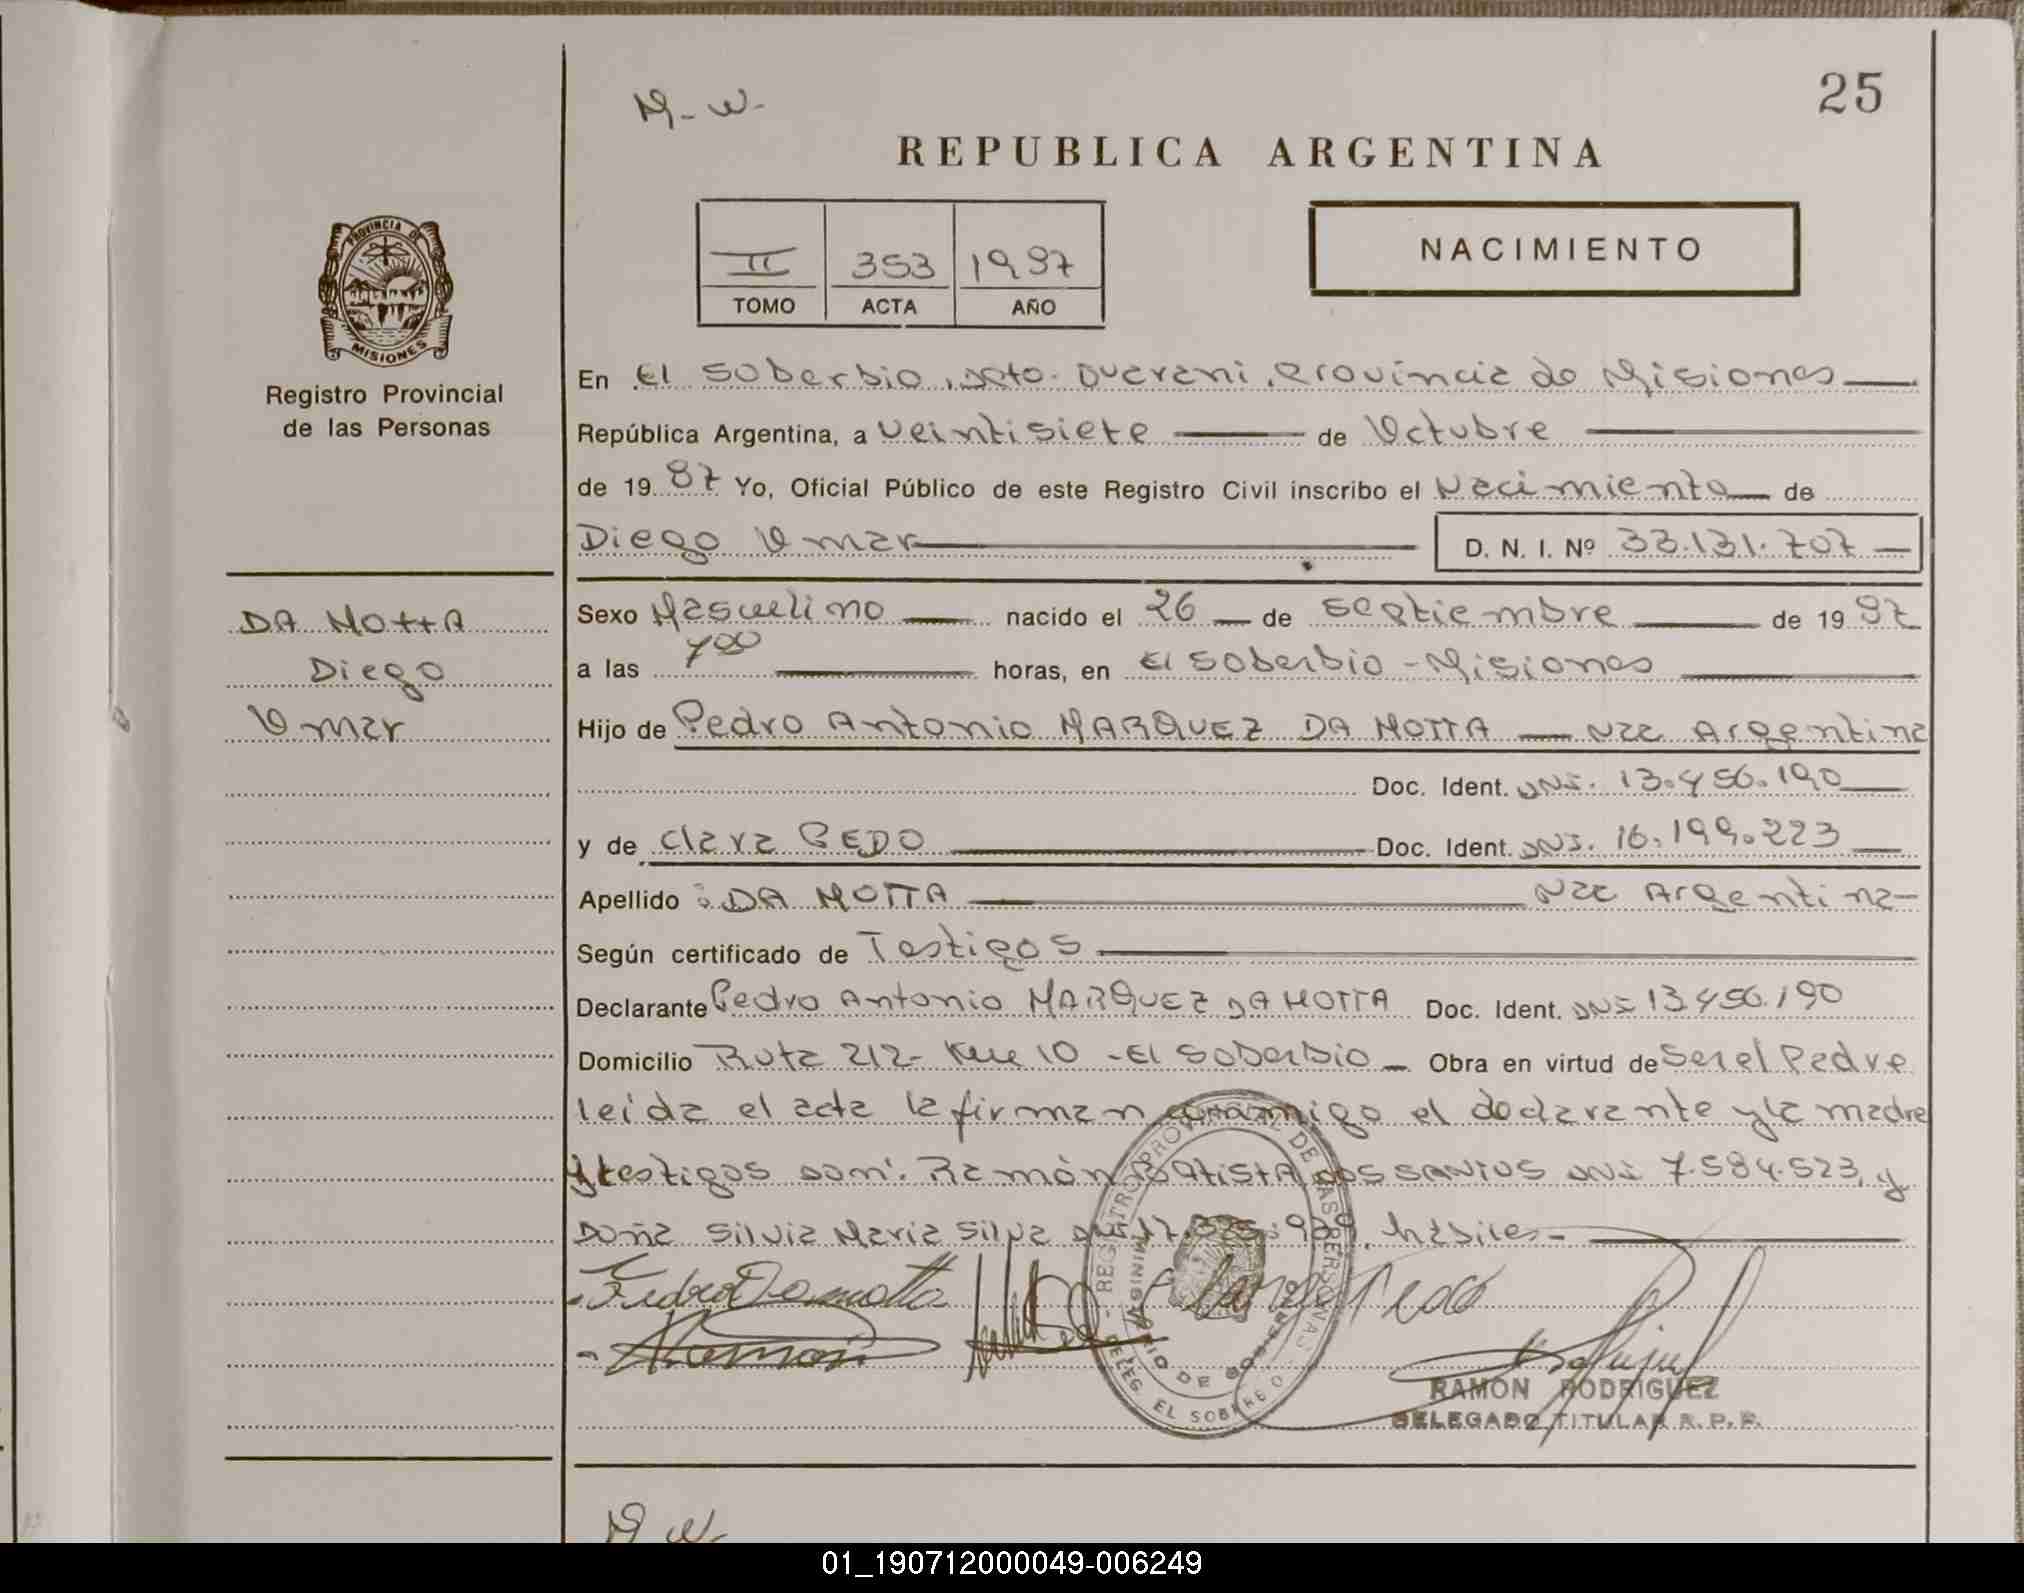 25
M-W-
REPUBLICA ARGENTINA
II 353 1987
TOMO ACTA AÑO
NACIMIENTO
PROVINCIA DE MISIONES
Registro Provincial
de las Personas
En El Soberbio, Dpto. Guarani, Provincia de Misiones
República Argentina, a Veintisiete de Octubre
de 1987 Yo, Oficial Público de este Registro Civil inscribo el Nacimiento de
Diego Omar D. N. I. Nº 33.131.707
DA MOTTA
Diego
Omar
Sexo Masculino nacido el 26 de septiembre de 1987
a las 7 00 horas, en El Soberbio - Misiones
Hijo de Pedro Antonio MARQUEZ DA MOTTA Nac Argentina
Doc. Ident. DNI. 13.456.190
y de Clara PEDO Doc. Ident. DNI. 16.199.223
Apellido : DA MOTTA Nac Argentina
Según certificado de Testigos
Declarante Pedro Antonio MARQUEZ DA MOTTA Doc. Ident. DNI 13.456.190
Domicilio Ruta 212- Km 10 - El Soberbio Obra en virtud de Ser el Padre
leida el acta la firman conmigo el declarante y la madre
y testigos son: Ramón BATISTA DOS SANTOS DNI 7.584.523, y
Doña Silvia Maria Silva DNI 17. habiles-
Pedro Damotta Clara Pedo
Ramon
REGISTRO PROVINCIAL DE LAS PERSONAS
MINISTERIO DE GOBIERNO
DELEG. EL SOBERBIO
RAMON RODRIGUEZ
DELEGADO TITULAR R. P. P.
M W
01_190712000049-006249